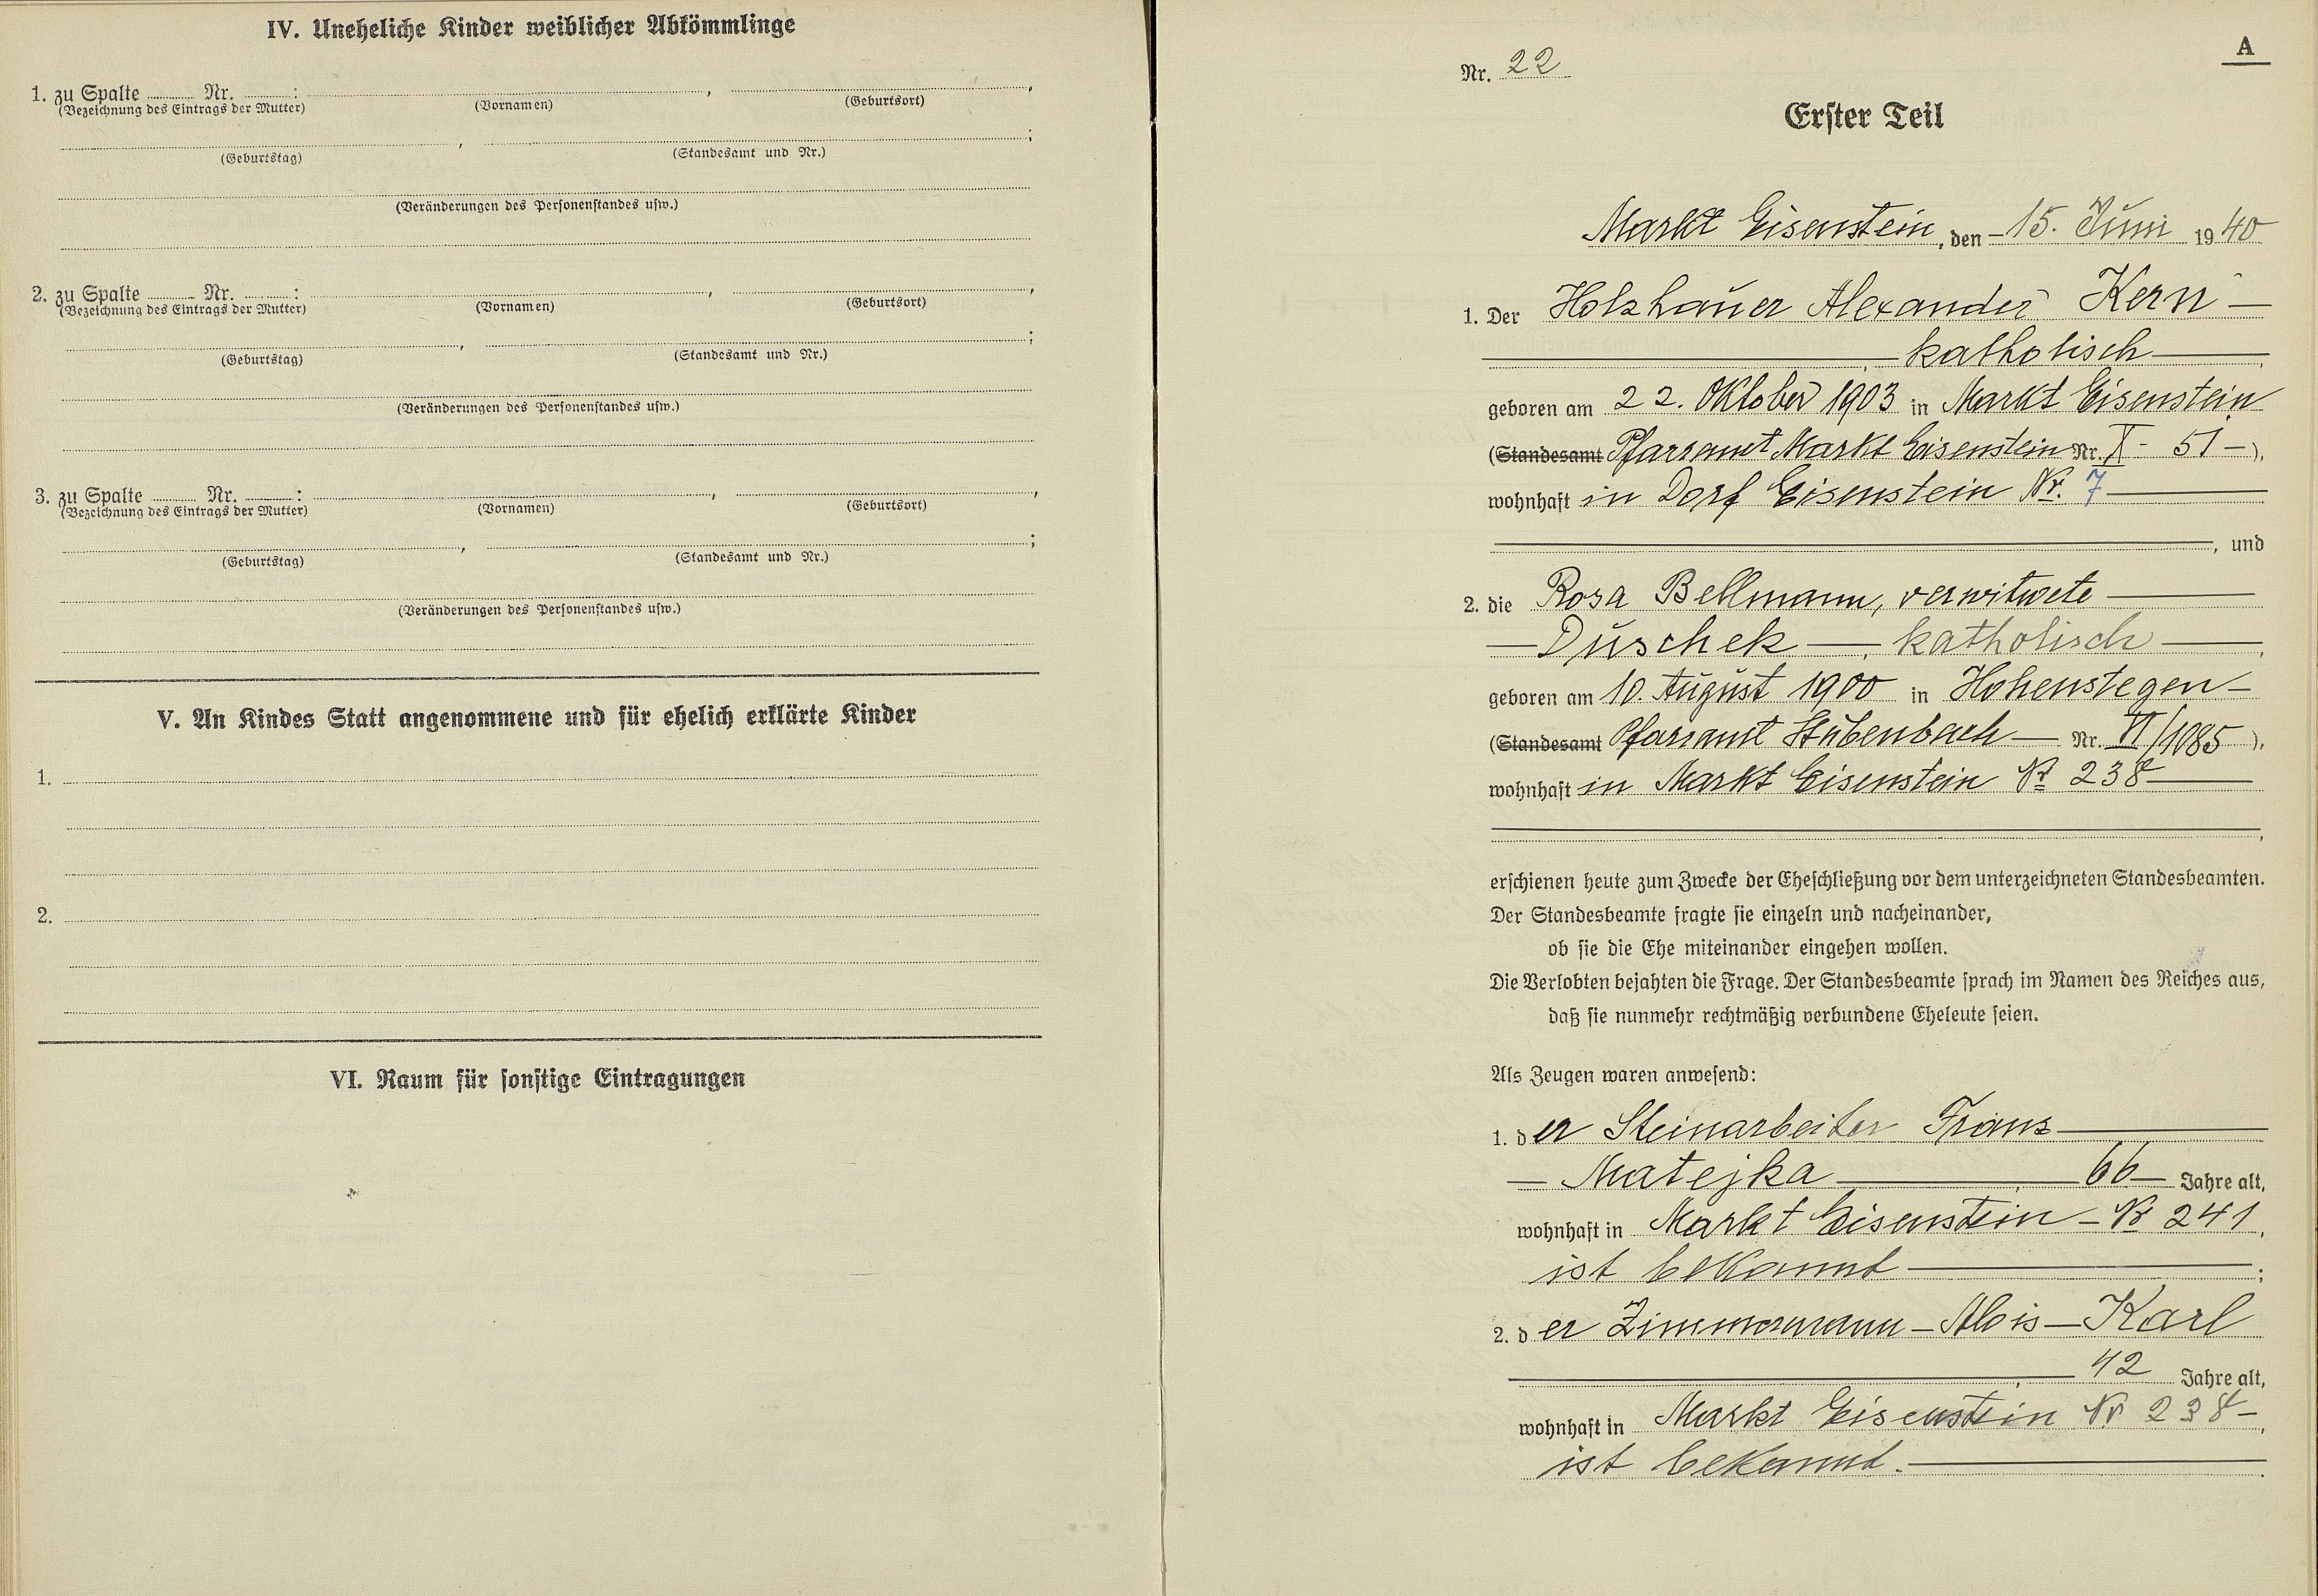 IV. Uneheliche Kinder weiblicher Abkömmlinge
1. zu Spalte Nr. : , ,
(Bezeichnung des Eintrags der Mutter) (Vornamen) (Geburtsort)
, ;
(Geburtstag) (Standesamt und Nr.)
(Veränderungen des Personenstandes usw.)
2. zu Spalte Nr. : , ,
(Bezeichnung des Eintrags der Mutter) (Vornamen) (Geburtsort)
, ;
(Geburtstag) (Standesamt und Nr.)
(Veränderungen des Personenstandes usw.)
3. zu Spalte Nr. : , ,
(Bezeichnung des Eintrags der Mutter) (Vornamen) (Geburtsort)
, ;
(Geburtstag) (Standesamt und Nr.)
(Veränderungen des Personenstandes usw.)
V. An Kindes Statt angenommene und für ehelich erklärte Kinder
1.
2.
VI. Raum für sonstige Eintragungen
A
Nr. 22
Erster Teil
Markt Eisenstein, den 15. Juni 1940
1. Der Holzhauer Alexander Kern
, katholisch,
geboren am 22. Oktober 1903 in Markt Eisenstein
(Standesamt Pfarramt Markt Eisenstein Nr. X - 51 ),
wohnhaft in Dorf Eisenstein Nr. 7
, und
2. die Rosa Bellmann, verwitwete
Duschek, katholisch,
geboren am 10. August 1900 in Hohenstegen
(Standesamt Pfarramt Stubenbach Nr. VI/1085 ),
wohnhaft in Markt Eisenstein Nr 238
,
erschienen heute zum Zwecke der Eheschließung vor dem unterzeichneten Standesbeamten.
Der Standesbeamte fragte sie einzeln und nacheinander,
ob sie die Ehe miteinander eingehen wollen.
Die Verlobten bejahten die Frage. Der Standesbeamte sprach im Namen des Reiches aus,
daß sie nunmehr rechtmäßig verbundene Eheleute seien.
Als Zeugen waren anwesend:
1. der Steinarbeiter Franz
Matejka, 66 Jahre alt,
wohnhaft in Markt Eisenstein - Nr 241,
ist bekannt ;
2. der Zimmermann - Alois - Karl
, 42 Jahre alt,
wohnhaft in Markt Eisenstein Nr 238,
ist bekannt.